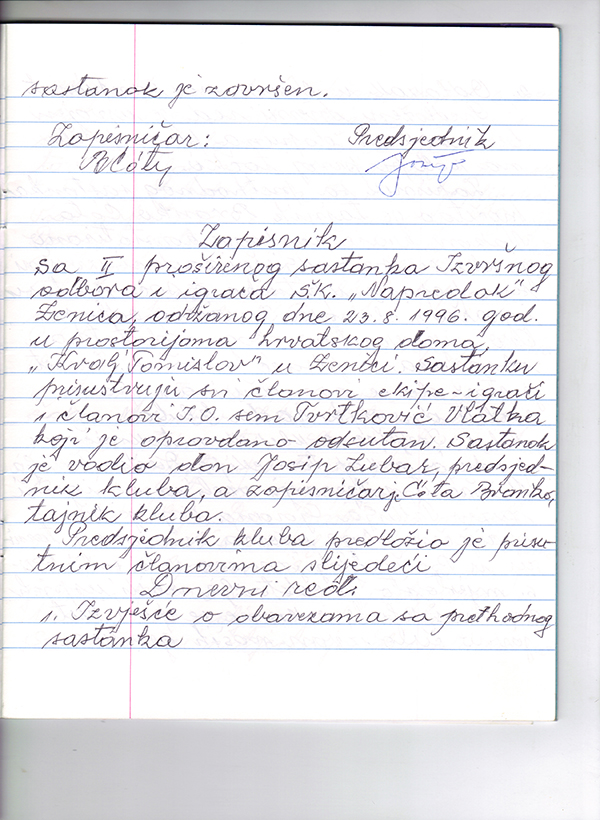 sastanak je završen.
Zapisničar: Predsjednik
BCóty Josip
Zapisnik
Sa II proširenog sastanka Izvršnog
odbora i igrača Š.K. „Napredak"
Zenica, održanog dne 23.8.1996. god.
u prostorijama hrvatskog doma,
„Kralj Tomislav" u Zenici. Sastanku
prisustvuju svi članovi ekipe-igrači
i članovi I.O. sem Tvrtković Vlatka
koji je opravdano odsutan. Sastanak
je vodio don Josip Lubar, predsjed-
nik kluba, a zapisničar je Cóta Branko,
tajnik kluba.
Predsjednik kluba predložio je prisu-
tnim članovima slijedeći
Dnevni red:
1. Izvješće o obavezama sa prethodnog
sastanka